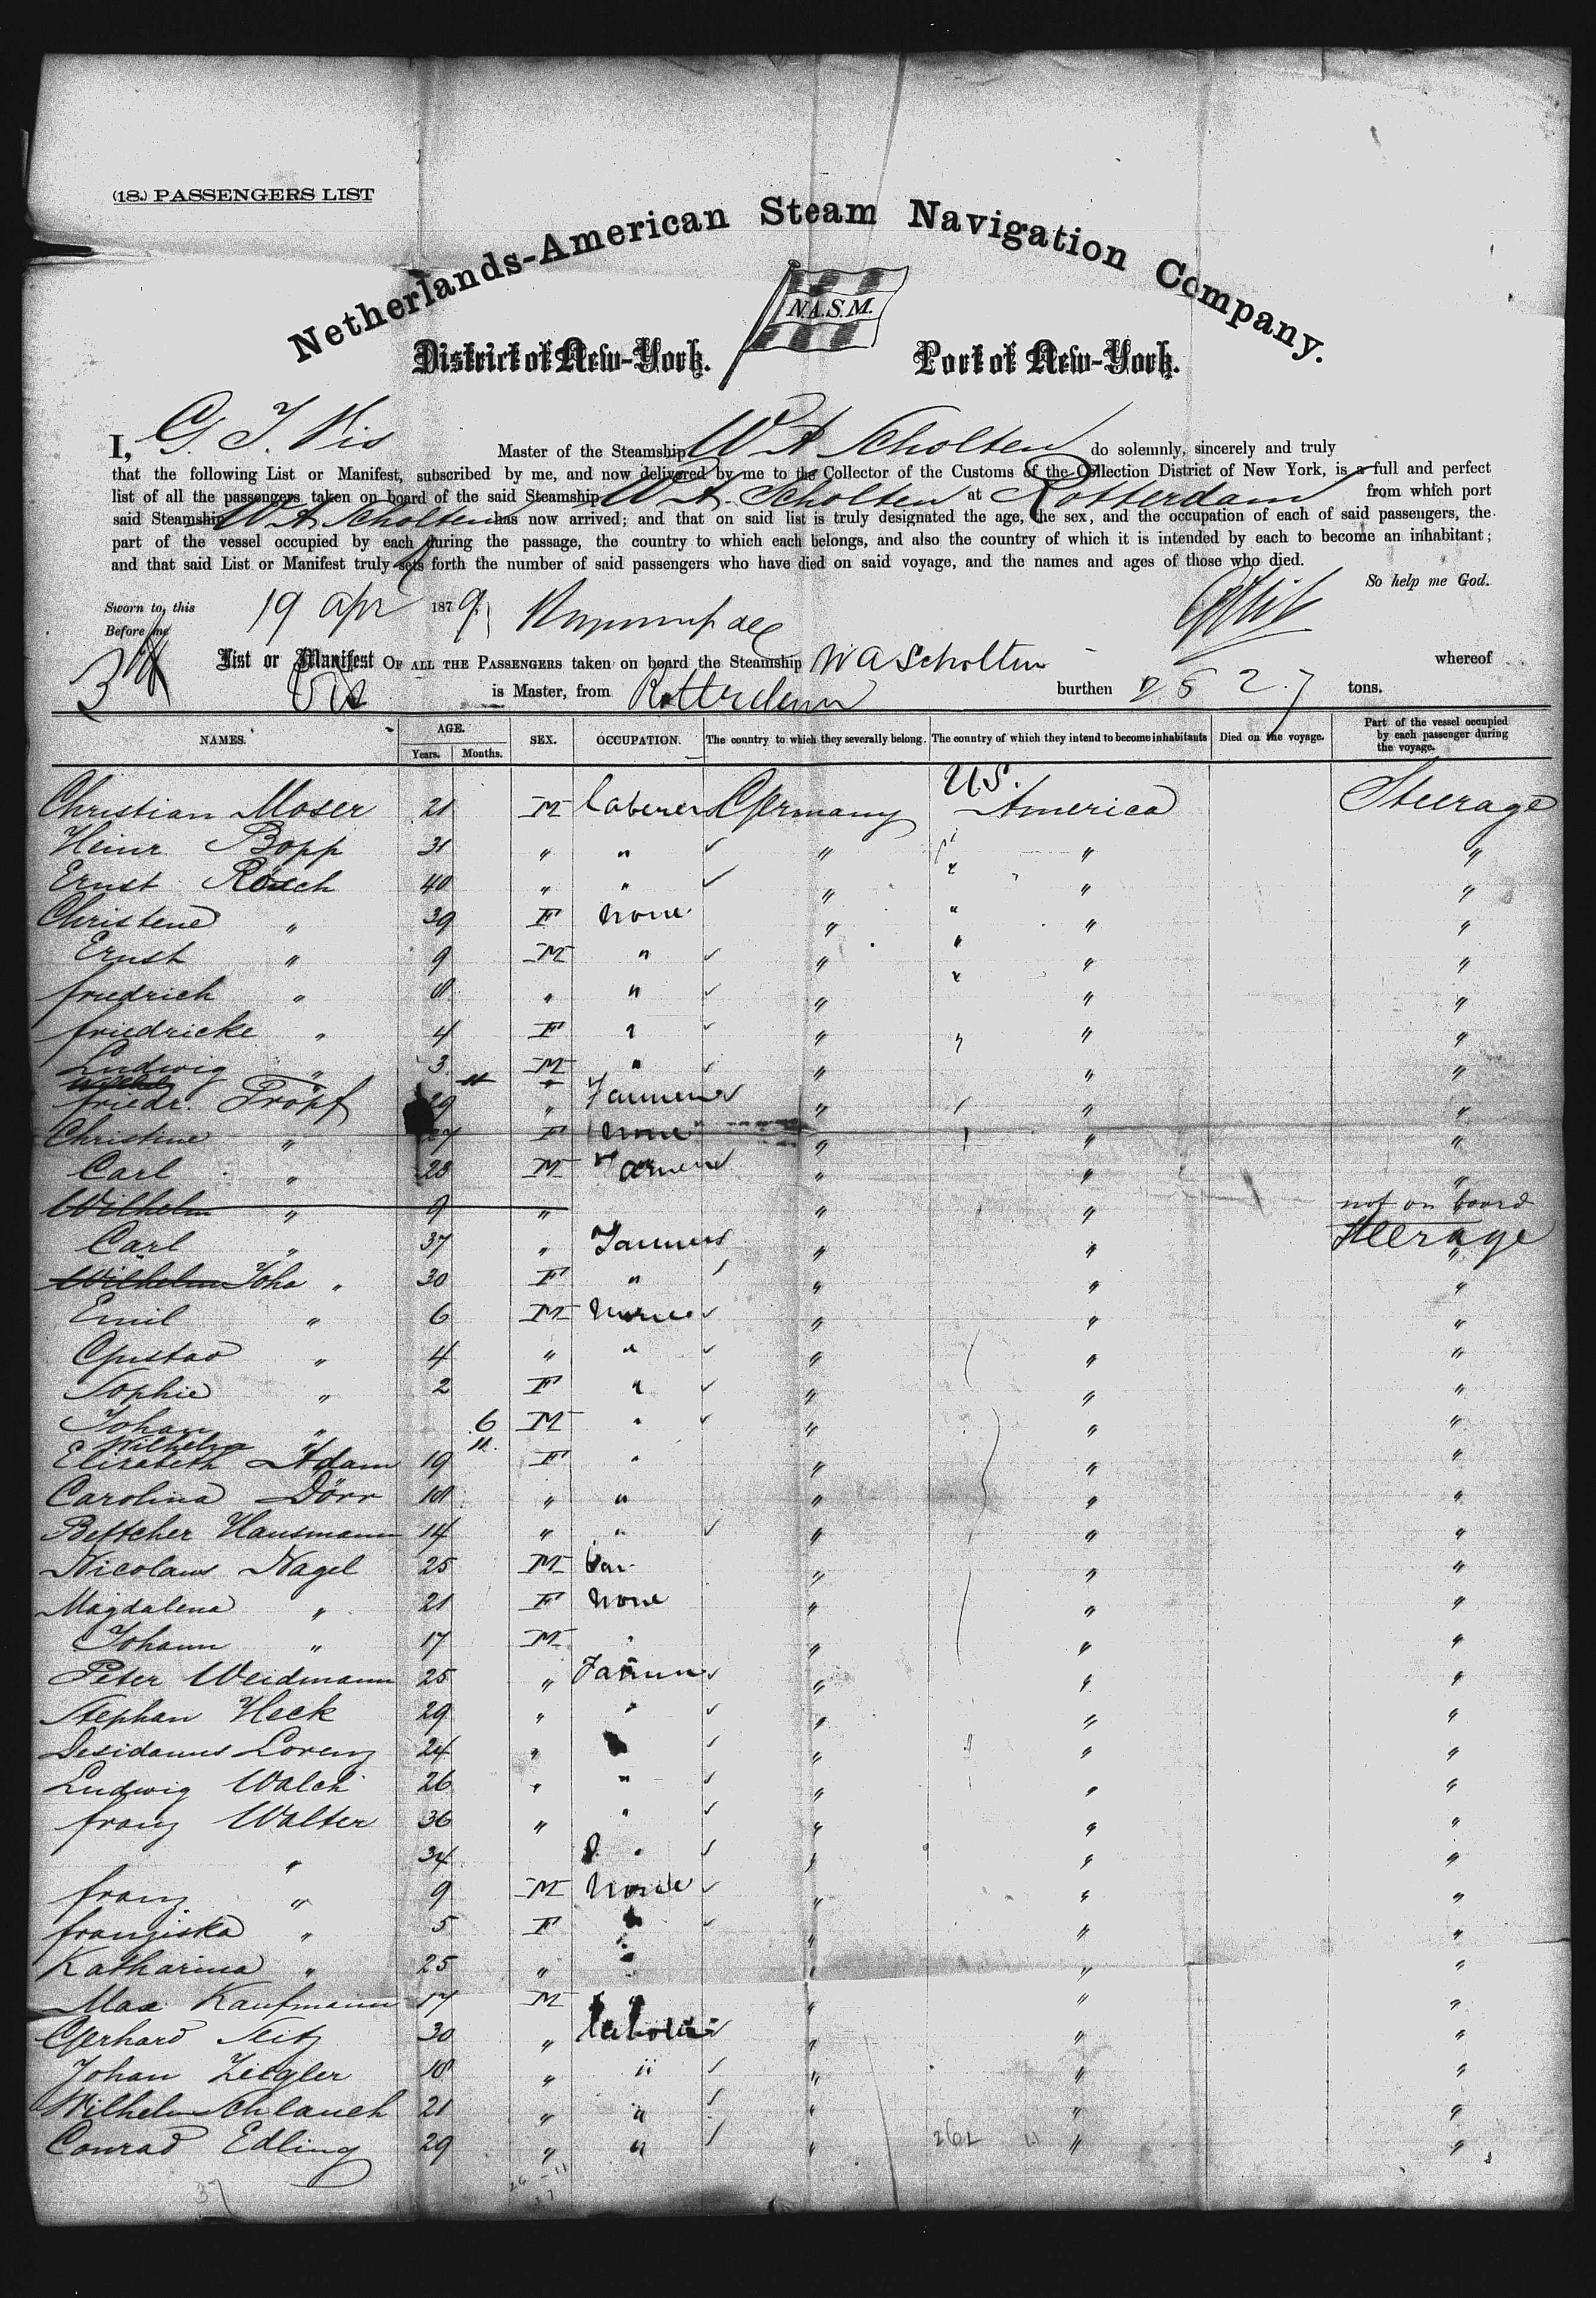 (18.) PASSENGERS LIST
Netherlands-American Steam Navigation Company.
N.A.S.M.
District of New-York. Port of New-York.
I, G. J. Vis Master of the Steamship W A Scholten do solemnly, sincerely and truly
that the following List or Manifest, subscribed by me, and now delivered by me to the Collector of the Customs of the Collection District of New York, is a full and perfect
list of all the passengers taken on board of the said Steamship W A. Scholten at Rotterdam from which port
said Steamship W A Scholten has now arrived; and that on said list is truly designated the age, the sex, and the occupation of each of said passengers, the
part of the vessel occupied by each during the passage, the country to which each belongs, and also the country of which it is intended by each to become an inhabitant;
and that said List or Manifest truly sets forth the number of said passengers who have died on said voyage, and the names and ages of those who died.
So help me God.
Sworn to, this 19 Apr 1879
Before me
List or Manifest OF ALL THE PASSENGERS taken on board the Steamship W A Scholten whereof
Vis is Master, from Rotterdam burthen 2527 tons.
NAMES. AGE. Years. Months. SEX. OCCUPATION. The country to which they severally belong. The country of which they intend to become inhabitants Died on the voyage. Part of the vessel occupied by each passenger during the voyage.
Christian Moser 21 M laborer Germany U.S. America Steerage
Heinr Bopp 31 " " " " "
Ernst Rösch 40 " " " " "
Christene " 39 F None " " "
Ernst " 9 M " " " "
friedrich " 8 " " " " "
friedricke " 4 F " " " "
Ludwig " 3 M " " " "
friedr. Tröpf 29 " Farmer " " "
Christine " 27 F None " " "
Carl " 28 M Farmer " " "
Wilhelm " 9 " " " not on board
Carl " 37 " Farmers " " Steerage
Wilhelm Joha " 30 F " " " "
Emil " 6 M None " " "
Gustav " 4 " " " " "
Sophie " 2 F " " " "
Johan " 6 M " " " "
Wilhelm " 11
Elisabeth Adam 19 F " " " "
Carolina Dörr 18 " " " " "
Bettcher Hausmann 14 " " " " "
Nicolaus Nagel 25 M " " "
Magdalena " 21 F None " " "
Johann " 17 M " " " "
Peter Weidmann 25 " Farmer " " "
Stephan Heck 29 " " " " "
Lorenz 24 " " " "
Ludwig Walch 26 " " " " "
franz Walter 36 " " " " "
" 34 " " " "
franz " 9 M None " " "
franziska " 5 F " " "
Katharina " 25 " " " "
Max Kaufmann 17 M " " "
Gerhard Seitz 30 " laborer " " "
Johan Ziegler 18 " " " " "
Wilhelm Schlauch 21 " " " " "
Conrad Edling 29 " " " 262 " "
37